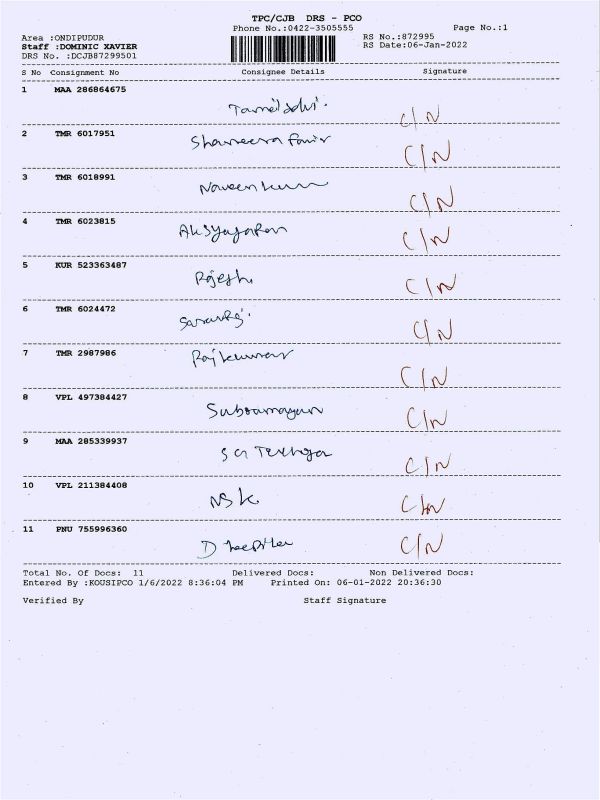 TPC/CJB DRS - PCO
Phone No.:0422-3505555 Page No.:1
Area :ONDIPUDUR RS No.:872995
Staff :DOMINIC XAVIER RS Date:06-Jan-2022
DRS No. :DCJB87299501
S No Consignment No Consignee Details Signature
1 MAA 286864675
C/N
2 TMR 6017951
C/N
3 TMR 6018991
Naveen kumar C/N
4 TMR 6023815
C/N
5 KUR 523363487
Rajesh C/N
6 TMR 6024472
C/N
7 TMR 2987986
Rajkumar C/N
8 VPL 497384427
Subramayan C/N
9 MAA 285339937
C/N
10 VPL 211384408
NSK C/N
11 PNU 755996360
C/N
Total No. Of Docs: 11 Delivered Docs: Non Delivered Docs:
Entered By :KOUSIPCO 1/6/2022 8:36:04 PM Printed On: 06-01-2022 20:36:30
Verified By Staff Signature